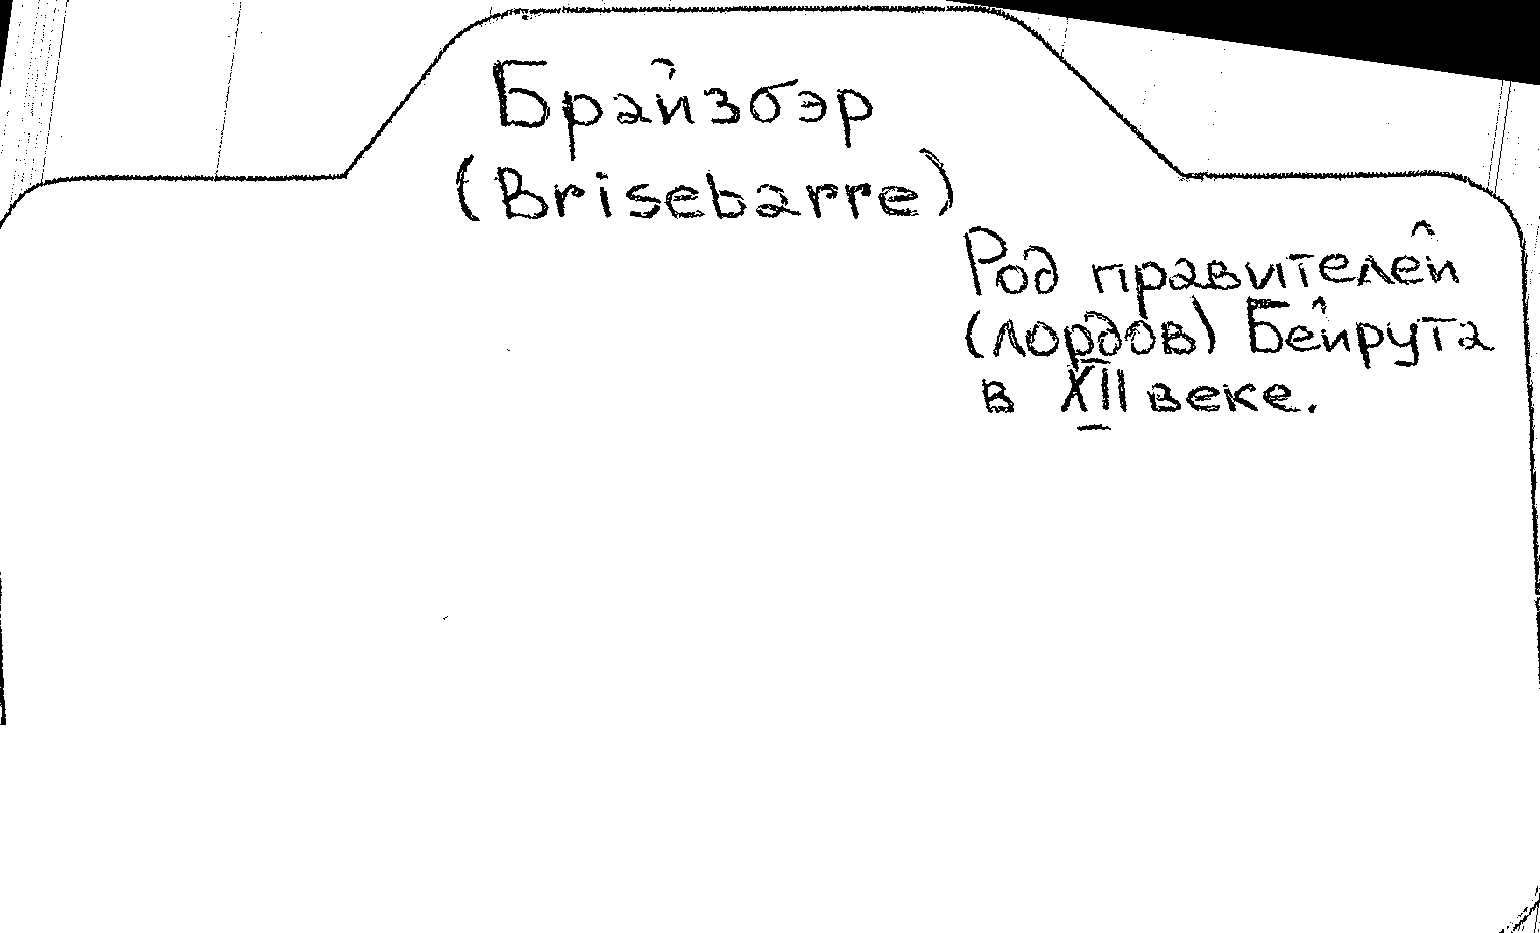 Брайзбэр
(Brisebarre)
Род правителей
(лордов) Бейрута
в XII веке.